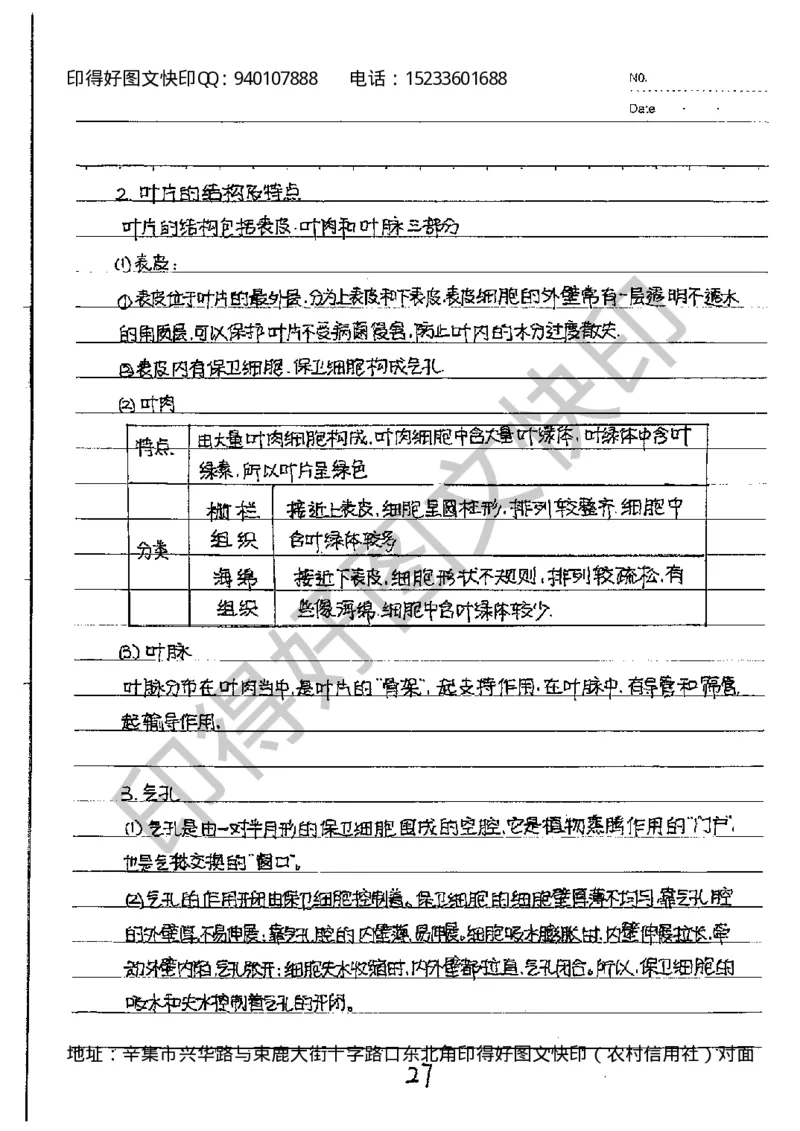 印得好图文快印QQ：940107888 电话：15233601688
NO.
Date
2. 叶片的结构及特点
叶片的结构包括表皮.叶肉和叶脉三部分
(1)表皮：
①表皮位于叶片的最外层,分为上表皮和下表皮.表皮细胞的外壁常有一层透明不透水
的角质层,可以保护叶片不受病菌侵害,防止叶内的水分过度散失.
②表皮内有保卫细胞.保卫细胞构成气孔.
(2)叶肉
特点 由大量叶肉细胞构成,叶肉细胞中含大量叶绿体,叶绿体中含叶
绿素,所以叶片呈绿色
分类 栅栏 接近上表皮,细胞呈圆柱形,排列较整齐.细胞中
组织 含叶绿体较多
海绵 接近下表皮,细胞形状不规则,排列较疏松,有
组织 些像海绵.细胞中含叶绿体较少.
(3)叶脉
叶脉分布在叶肉当中,是叶片的"骨架",起支持作用.在叶脉中,有导管和筛管,
起输导作用.
3.气孔
(1)气孔是由一对半月形的保卫细胞围成的空腔,它是植物蒸腾作用的"门户",
也是气体交换的"窗口"。
(2)气孔的作用开闭由保卫细胞控制着。保卫细胞的细胞壁厚薄不均匀,靠气孔腔
的外壁厚,不易伸展;靠气孔腔的内壁薄,易伸展.细胞吸水膨胀时,内壁伸展拉长,牵
动外壁内陷气孔张开;细胞失水收缩时,内外壁都拉直,气孔闭合。所以,保卫细胞的
吸水和失水控制着气孔的开闭。
地址：辛集市兴华路与束鹿大街十字路口东北角印得好图文快印（农村信用社）对面
27
印得好图文快印